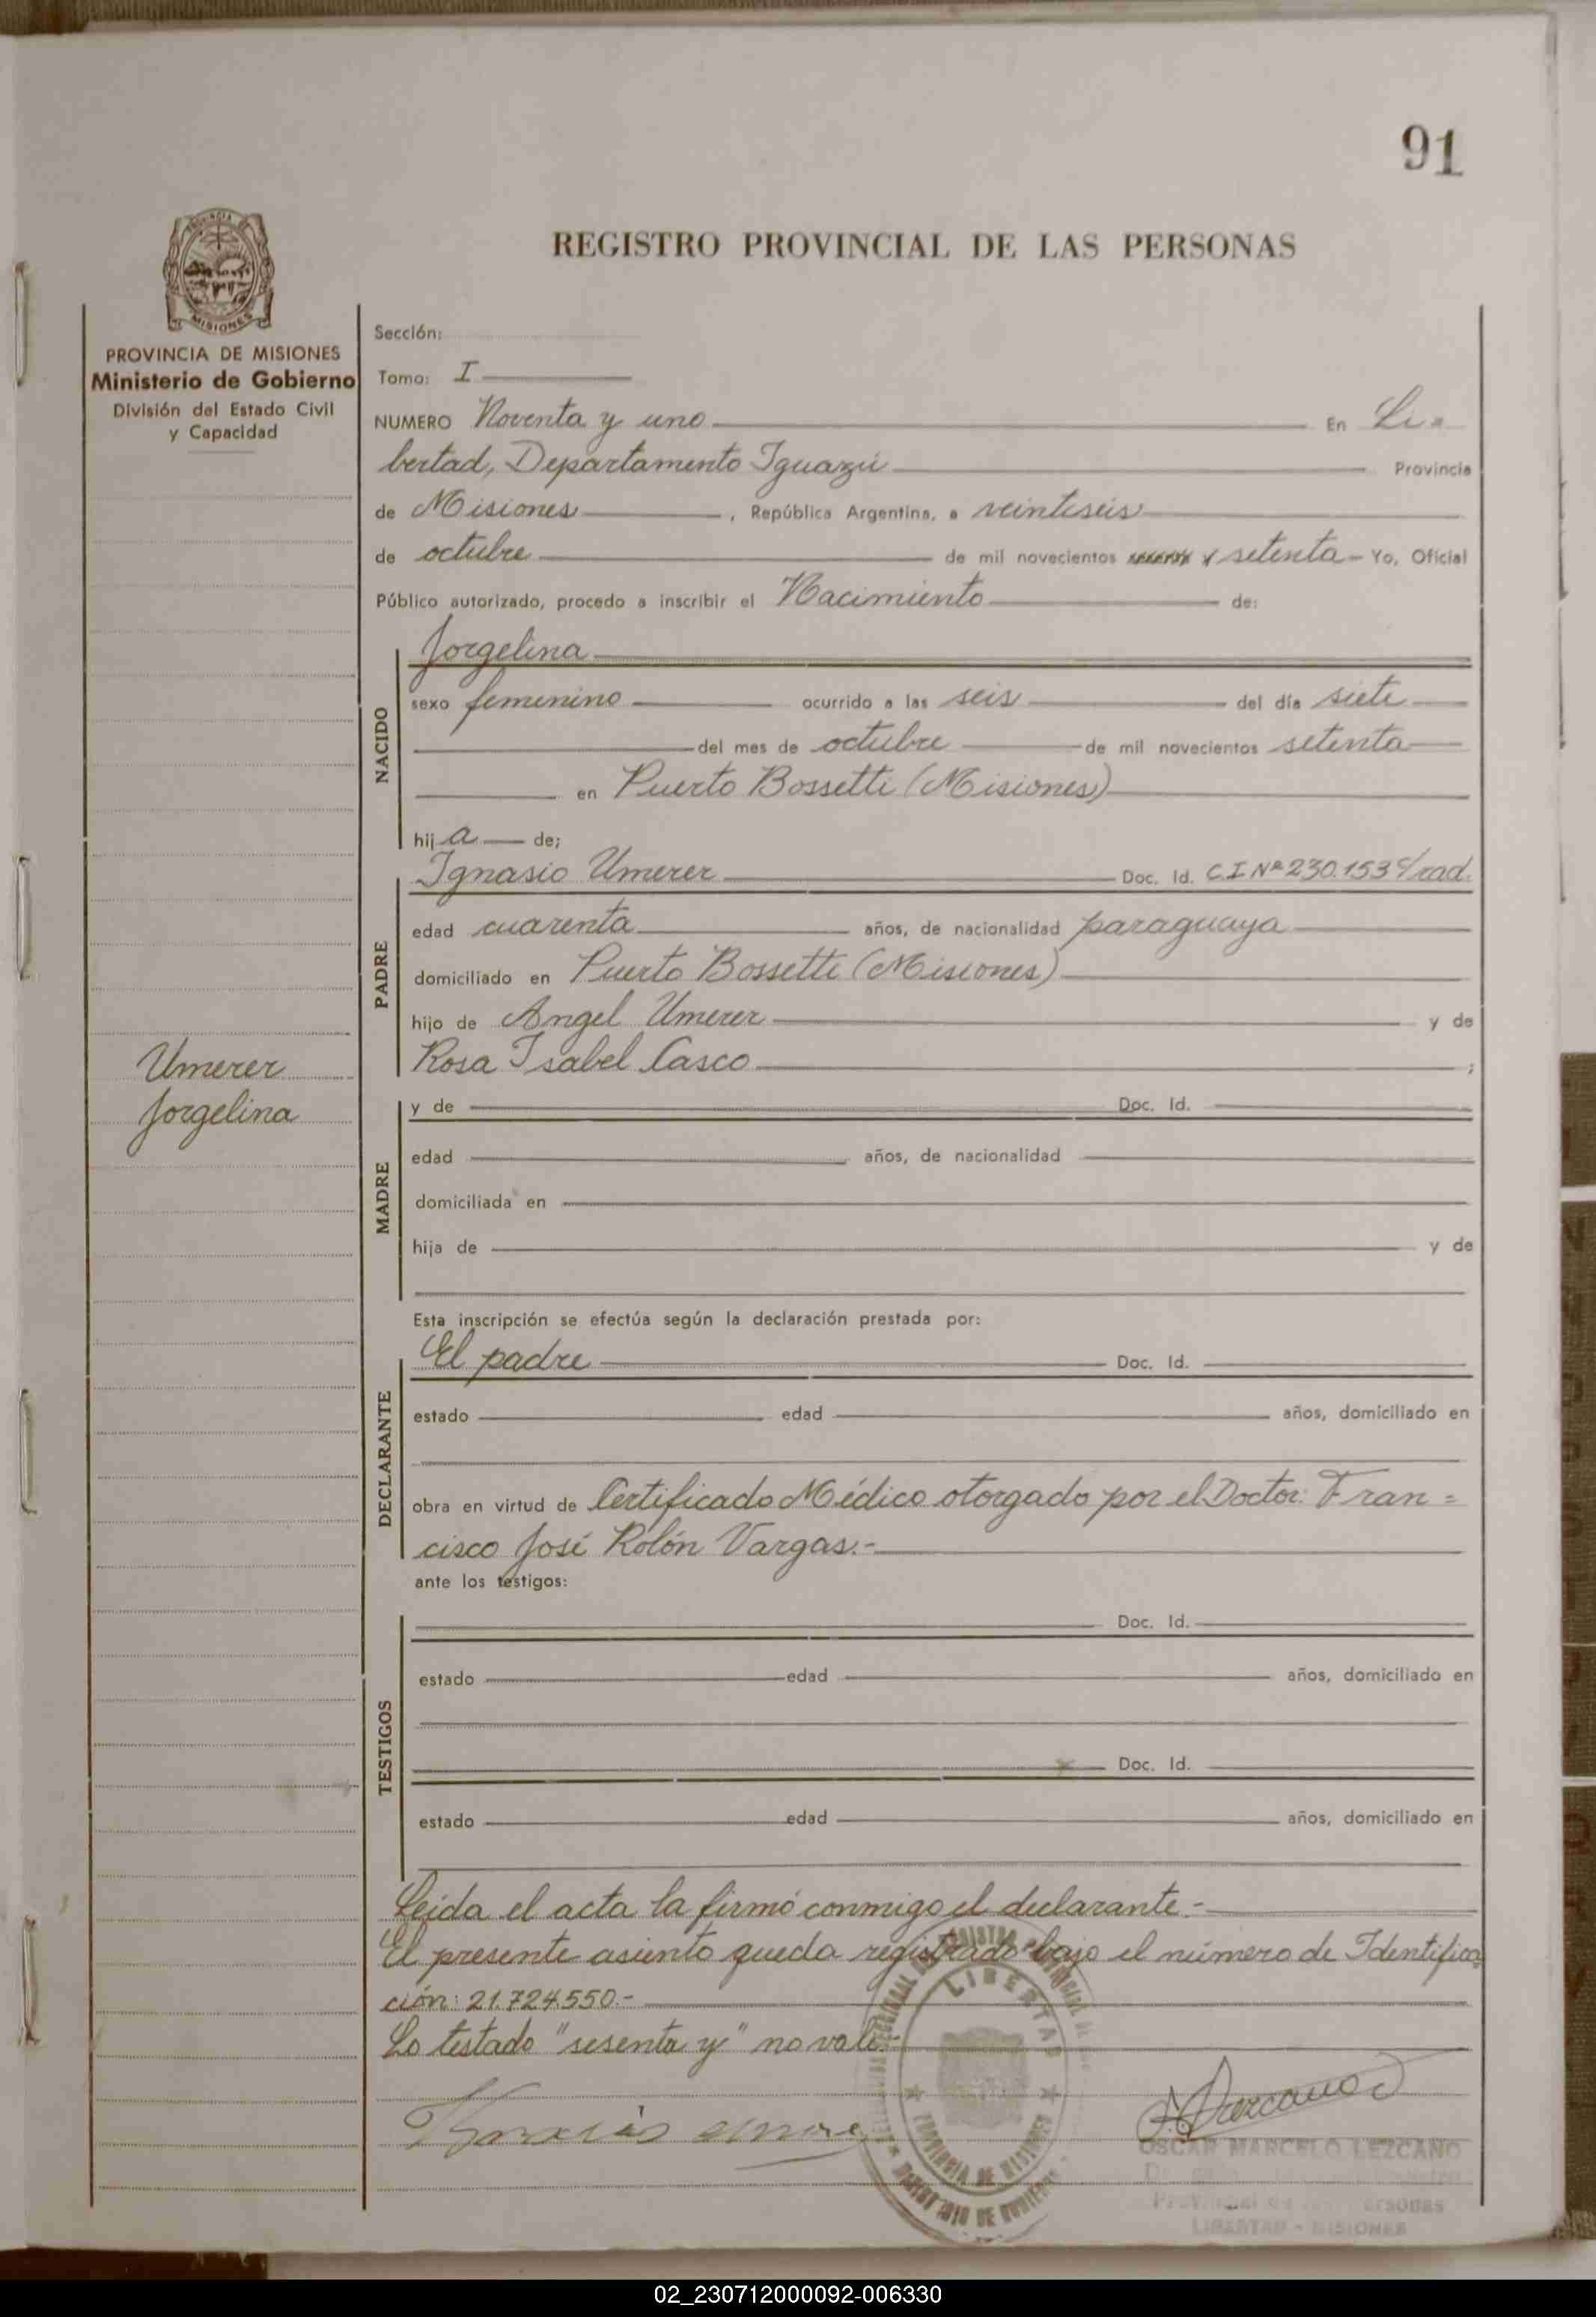 91
REGISTRO PROVINCIAL DE LAS PERSONAS
PROVINCIA DE MISIONES
Ministerio de Gobierno
División del Estado Civil
y Capacidad
Sección:
Tomo: I
NUMERO Noventa y uno En Li-
bertad, Departamento Iguazú Provincia
de Misiones, República Argentina, a veintiseis
de octubre de mil novecientos sesenta y setenta - Yo, Oficial
Público autorizado, procedo a inscribir el Nacimiento de:
NACIDO
Jorgelina
sexo femenino ocurrido a las seis del día siete
del mes de octubre de mil novecientos setenta
en Puerto Bossetti (Misiones)
hija de;
PADRE
Ignasio Umerer Doc. Id. C.I Nº 230.153
edad cuarenta años, de nacionalidad paraguaya
domiciliado en Puerto Bossetti (Misiones)
hijo de Angel Umerer y de
Rosa Isabel Casco ;
Umerer
Jorgelina
MADRE
y de Doc. Id.
edad años, de nacionalidad
domiciliada en
hija de y de
Esta inscripción se efectúa según la declaración prestada por:
DECLARANTE
El padre Doc. Id.
estado edad años, domiciliado en
obra en virtud de Certificado Médico otorgado por el Doctor: Fran=
cisco José Rolón Vargas.-
ante los testigos:
TESTIGOS
Doc. Id.
estado edad años, domiciliado en
Doc. Id.
estado edad años, domiciliado en
Leída el acta la firmó conmigo el declarante.-
El presente asiento queda registrado bajo el número de Identifica
ción: 21.724.550.-
Lo testado "sesenta y" no vale.-
LIBERTAD
PROVINCIA DE MISIONES
OSCAR MARCELO LEZCANO
Provincial de las Personas
LIBERTAD - MISIONES
02_230712000092-006330